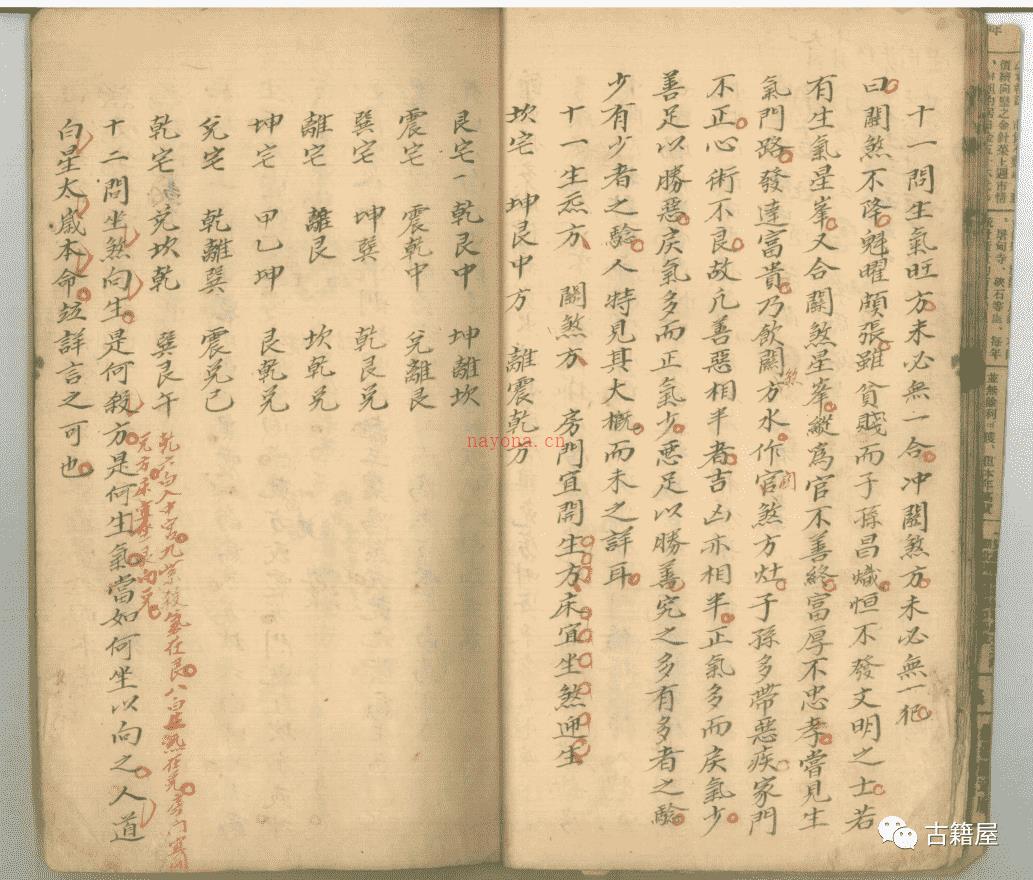 十一問生氣旺方未必無一合冲關煞方未必無一犯
曰關煞不降魁曜頗張雖貧賤而子孫昌熾恒不發文明之士若
有生氣星峯又合關煞星峯縱爲官不善終富厚不忠孝嘗見生
氣門路發達富貴乃飲關方水作官煞方灶子孫多帶惡疾家門
煞
關
不正心術不良故凡善惡相半者吉凶亦相半正氣多而戾氣少
善足以勝惡戾氣多而正氣少惡足以勝善究之多有多者之驗
少有少者之驗人特見其大概而未之詳耳
十一生炁方 關煞方 房門宜開生方床宜坐煞迎生
坎宅 坤艮中方 離震乾方
艮宅 乾艮中 坤離坎
震宅 震乾中 兌離艮
巽宅 坤巽 乾艮兌
離宅 離艮 坎乾兌
坤宅 甲乙坤 艮乾兌
兌宅 乾離巽 震兌己
乾宅 兌坎乾 巽艮午
乾六白入中宮九紫
在艮八白
十二問坐煞向生是何殺方是何生氣當如何坐以向之人道
白星太歲本命竝詳言之可也
nayona.cn
古籍屋